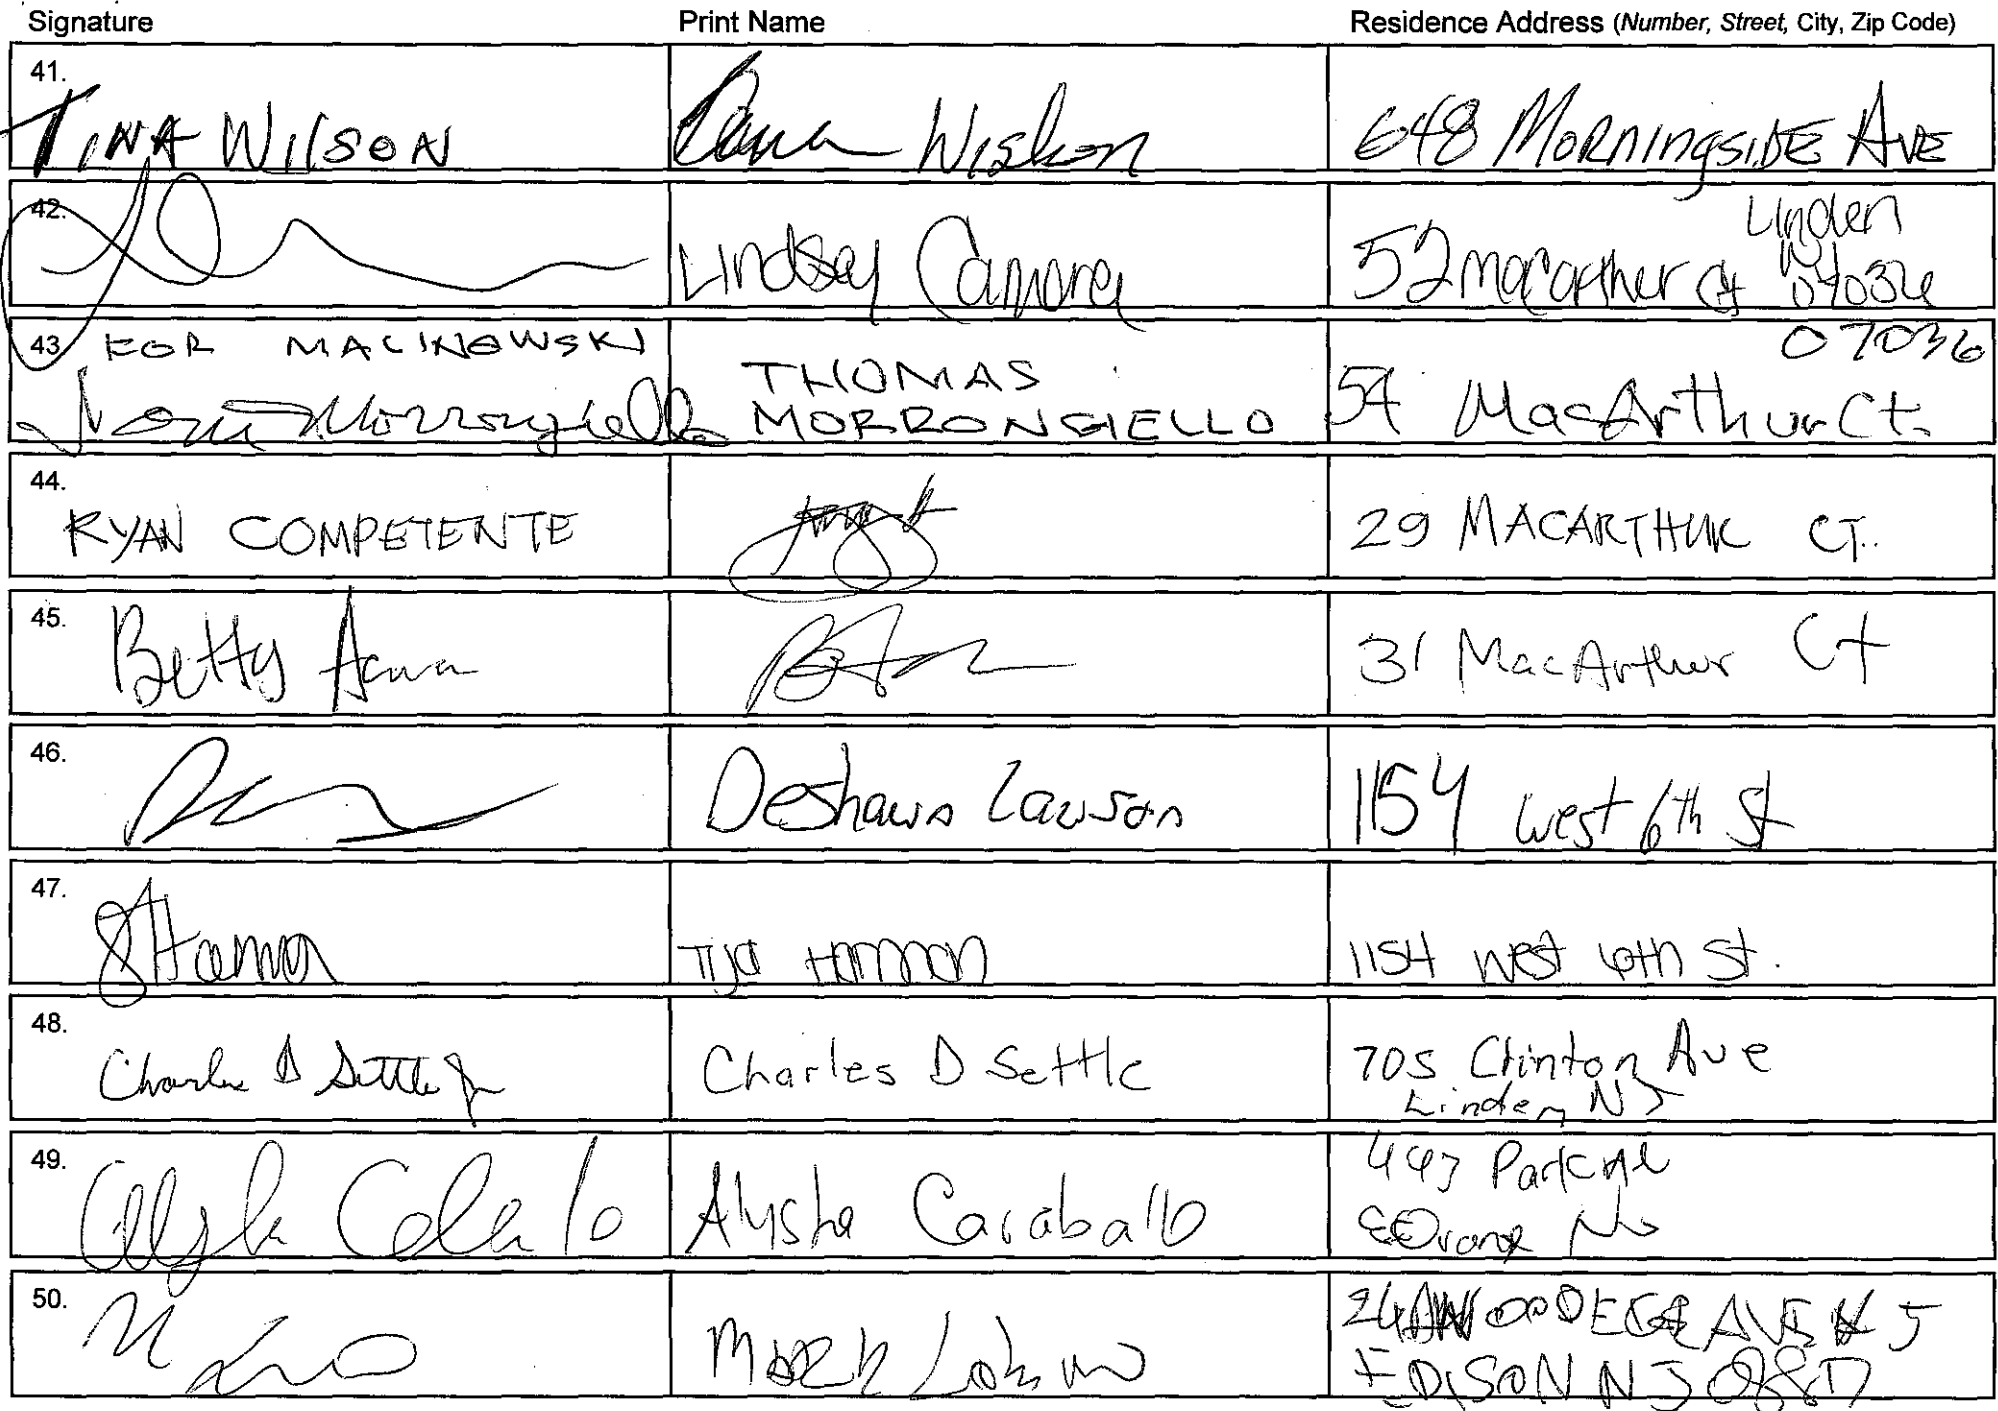 Signature Print Name Residence Address (Number, Street, City, Zip Code)
41.
TINA WILSON
648 MORNINGSIDE AVE
42.
Lindsay
52 macarther ct
Linden
NJ
07036
43 FOR MALINOWSKI
THOMAS
MORRONGIELLO
07036
54 MacArthur Ct.
44.
RYAN COMPETENTE
29 MACARTHUR CT.
45.
Betty
31 MacArthur Ct
46.
Deshawn Lawson
1154 west 6th St
47.
Harmon
1154 West 6th St.
48.
Charles D Settle Jr
Charles D Settle
705 Clinton Ave
Linden NJ
49.
Alysha Caraballo
Park
E Orange
50.
Mark
AVE
EDISON NJ